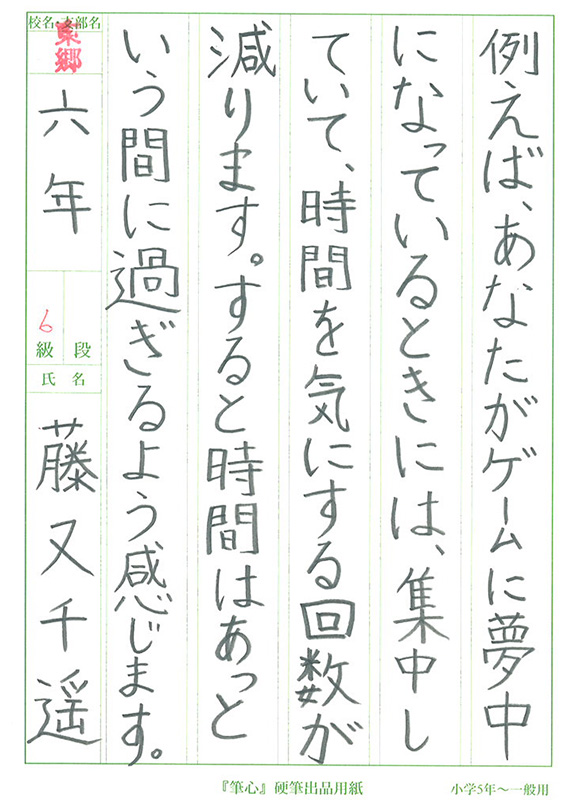 例えば、あなたがゲームに夢中
になっているときには、集中し
ていて、時間を気にする回数が
減ります。すると時間はあっと
いう間に過ぎるよう感じます。
校名・支部名
東郷
六年
6
級 段
氏 名
藤又千遥
『筆心』硬筆出品用紙
小学5年〜一般用